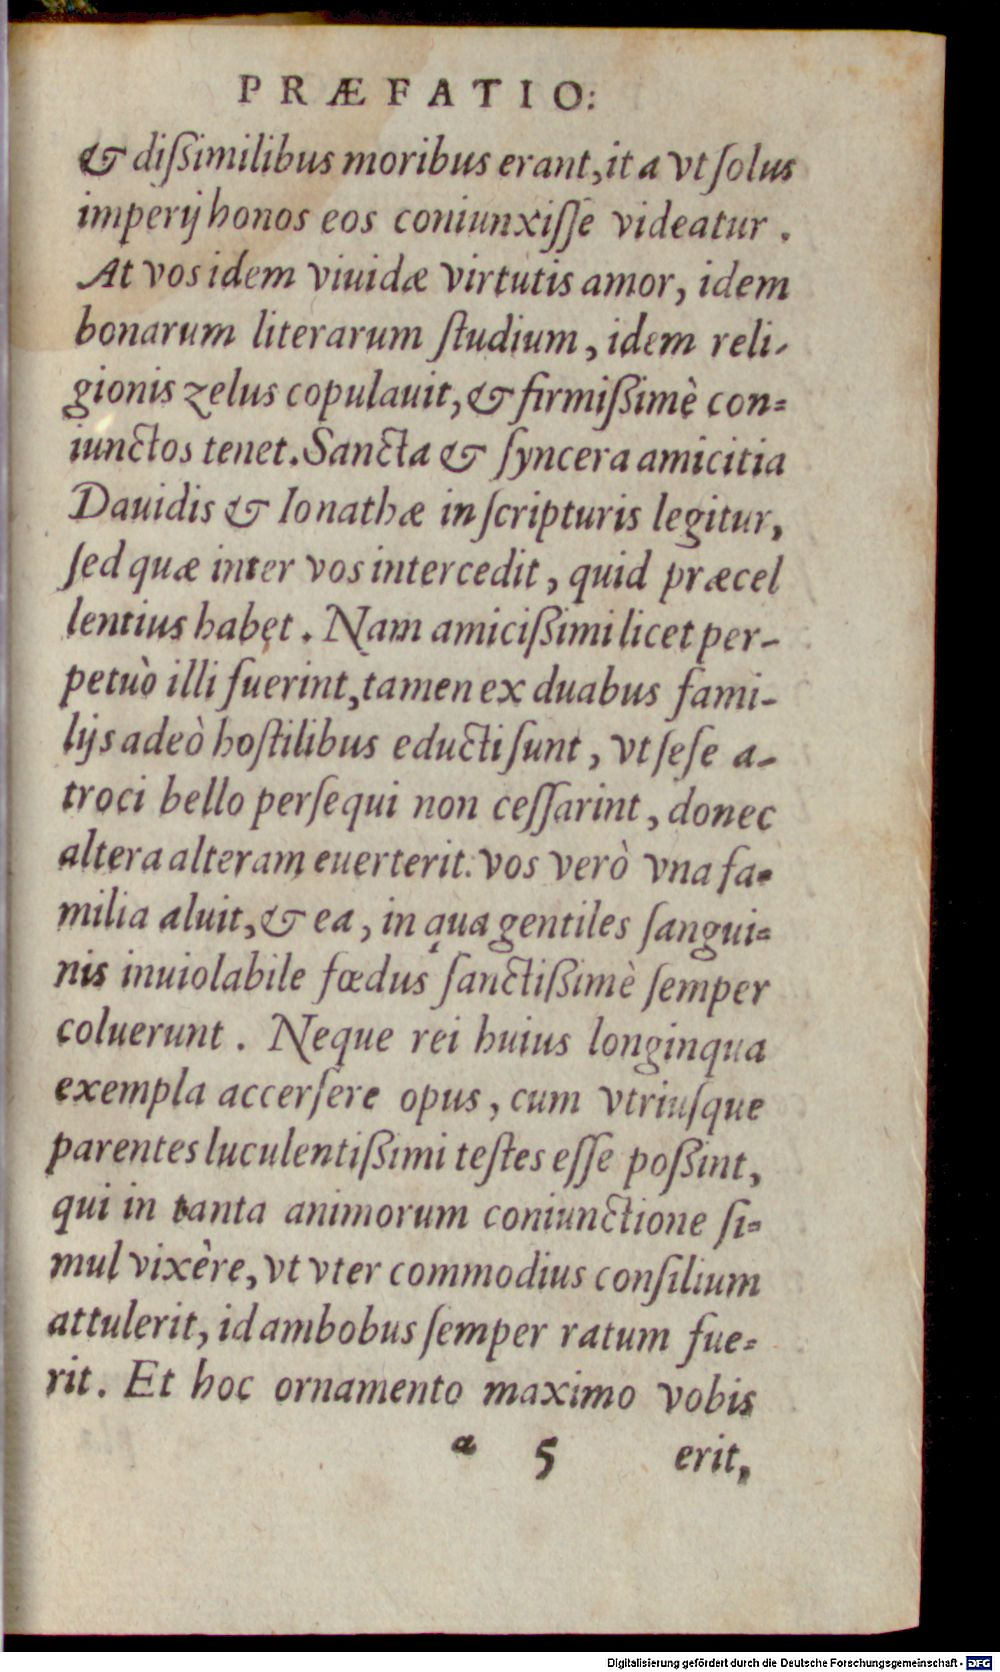 PRÆFATIO:
& dißimilibus moribus erant, ita vt ſolus
imperij honos eos coniunxiſſe videatur.
At vos idem viuidæ virtutis amor, idem
bonarum literarum ſtudium, idem reli-
gionis zelus copulauit, & firmißimè con=
iunctos tenet. Sancta & ſyncera amicitia
Dauidis & Ionathæ in ſcripturis legitur,
ſed quæ inter vos intercedit, quid præcel
lentius habet. Nam amicißimi licet per-
petuò illi fuerint, tamen ex duabus fami-
lijs adeò hoſtilibus educti ſunt, vt ſeſe a-
troci bello perſequi non ceſſarint, donec
altera alteram euerterit: vos verò vna fa=
milia aluit, & ea, in qua gentiles ſangui=
nis inuiolabile fœdus ſanctißimè ſemper
coluerunt. Neque rei huius longinqua
exempla accerſere opus, cum vtriuſque
parentes luculentißimi teſtes eſſe poßint,
qui in tanta animorum coniunctione ſi=
mul vixère, vt vter commodius conſilium
attulerit, id ambobus ſemper ratum fue=
rit. Et hoc ornamento maximo vobis
a 5 erit,
Digitalisierung gefördert durch die Deutsche Forschungsgemeinschaft - DFG